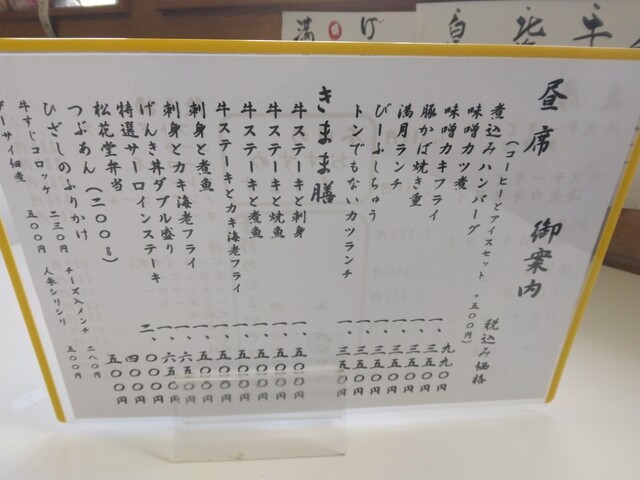 満〇げ
自
牛
昼席 御案内
税込み価格
(コーヒーとアイスセット +五〇〇円)
煮込みハンバーグ 九九〇円
味噌カツ煮 一、三五〇円
味噌カキフライ 一、三五〇円
豚かば焼き重 一、三五〇円
満月ランチ 一、三五〇円
びーふしちゅう 一、三五〇円
トンでもないカツランチ 一、三五〇円
きまま膳
牛ステーキと刺身 一、五〇〇円
牛ステーキと焼魚 一、五〇〇円
牛ステーキと煮魚 一、五〇〇円
牛ステーキとカキ海老フライ 一、五〇〇円
刺身と煮魚 一、五〇〇円
刺身とカキ海老フライ 一、五〇〇円
げんき丼ダブル盛り 一、六五〇円
特選サーロインステーキ 二、
松花堂弁当
つぶあん(二〇〇g) 五〇〇円
ひざしのふりかけ 二三〇円 チーズ入メンチ 二八〇円
牛すじコロッケ 五〇〇円 人参シリシリ 五〇〇円
ザーサイ佃煮